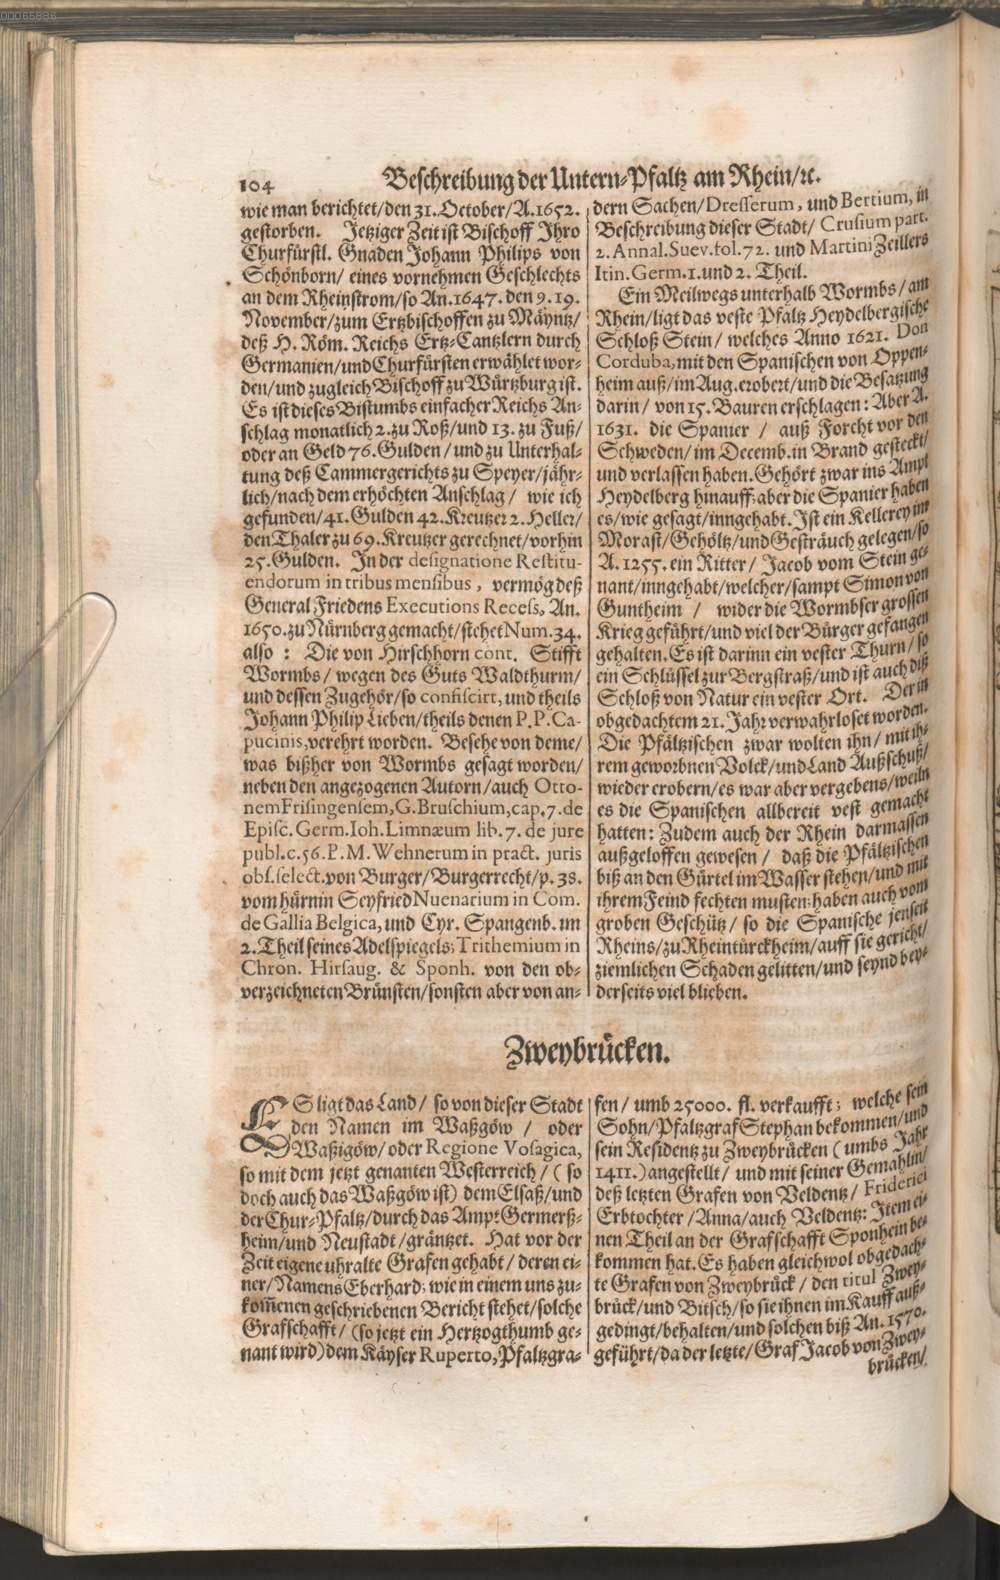 00065888
104 Beschreibung der Untern-Pfaltz am Rhein/ꝛc.
wie man berichtet/den 31. October/A.1652.
gestorben. Jetziger Zeit ist Bischoff Ihro
Churfürstl. Gnaden Johann Philips von
Schönborn/ eines vornehmen Geschlechts
an dem Rheinstrom/so An.1647. den 9.19.
November/zum Ertzbischoffen zu Mäyntz/
deß H. Röm. Reichs Ertz-Cantzlern durch
Germanien/und Churfürsten erwählet wor-
den/und zugleich Bischoff zu Würtzburg ist.
Es ist dieses Bistumbs einfacher Reichs An-
schlag monatlich 2. zu Roß/und 13. zu Fuß/
oder an Geld 76. Gulden / und zu Unterhal-
tung deß Cammergerichts zu Speyer/jähr-
lich/nach dem erhöchten Anschlag / wie ich
gefunden/41. Gulden 42. Kreutzer 2. Heller/
den Thaler zu 69. Kreutzer gerechnet/vorhin
25. Gulden. In der designatione Restitu-
endorum in tribus mensibus, vermög deß
General Friedens Executions Recess, An.
1650. zu Nürnberg gemacht/stehet Num.34.
also : Die von Hirschhorn cont. Stifft
Wormbs / wegen des Guts Waldthurm/
und dessen Zugehör/so confiscirt, und theils
Johann Philip Lieben/theils denen P.P.Ca-
pucinis, verehrt worden. Besehe von deme/
was bißher von Wormbs gesagt worden/
neben den angezogenen Autorn/auch Otto-
nem Frisingensem, G. Bruschium, cap. 7. de
Episc. Germ. Ioh. Limnæum lib. 7. de jure
publ. c. 56. P. M. Wehnerum in pract. juris
obs. select. von Burger/Burgerrecht/p. 38.
vom hürnin Seyfried Nuenarium in Com.
de Gallia Belgica, und Cyr. Spangenb. im
2. Theil seines Adelspiegels; Trithemium in
Chron. Hirsaug. & Sponh. von den ob-
verzeichneten Brünsten/sonsten aber von an-
dern Sachen/Dresserum, und Bertium, in
Beschreibung dieser Stadt/ Crusium part.
2. Annal. Suev. fol. 72. und Martini Zeillers
Itin. Germ. 1. und 2. Theil.
Ein Meilwegs unterhalb Wormbs / am
Rhein/ligt das veste Pfaltz Heydelbergische
Schloß Stein / welches Anno 1621. Don
Corduba, mit den Spanischen von Oppen-
heim auß/im Aug. erobert/und die Besatzung
darin / von 15. Bauren erschlagen: Aber A.
1631. die Spanier / auß Forcht vor den
Schweden/ im Decemb. in Brand gesteckt/
und verlassen haben. Gehört zwar ins Ampt
Heydelberg hinauff; aber die Spanier haben
es/wie gesagt/inngehabt. Ist ein Kellerey im
Morast/Gehöltz/und Gesträuch gelegen/so
A. 1255. ein Ritter / Jacob vom Stein ge-
nant/inngehabt/welcher/sampt Simon von
Guntheim / wider die Wormbser grossen
Krieg geführt/und viel der Bürger gefangen
gehalten. Es ist darinn ein vester Thurn / so
ein Schlüssel zur Bergstraß/und ist auch diß
Schloß von Natur ein vester Ort. Der in
obgedachtem 21. Jahr verwahrloset worden.
Die Pfältzischen zwar wolten ihn / mit ih-
rem geworbnen Volck/und Land Außschuß/
wieder erobern/es war aber vergebens/weiln
es die Spanischen allbereit vest gemacht
hatten: Zudem auch der Rhein darmassen
außgeloffen gewesen / daß die Pfältzischen
biß an den Gürtel im Wasser stehen/und mit
ihrem Feind fechten musten; haben auch vom
groben Geschütz / so die Spanische jenseit
Rheins/zu Rheintürckheim/auff sie gericht/
ziemlichen Schaden gelitten/und seynd bey-
derseits viel blieben.
Zweybrücken.
ES ligt das Land / so von dieser Stadt
den Namen im Waßgöw / oder
Waßigöw/oder Regione Vosagica,
so mit dem jetzt genanten Westerreich / ( so
doch auch das Waßgöw ist) dem Elsaß/und
der Chur-Pfaltz/durch das Ampt Germerß-
heim/und Neustadt/gräntzet. Hat vor der
Zeit eigene uhralte Grafen gehabt / deren ei-
ner/Namens Eberhard; wie in einem uns zu-
kom̃enen geschriebenen Bericht stehet/solche
Grafschafft/ (so jetzt ein Hertzogthumb ge-
nant wird) dem Käyser Ruperto, Pfaltzgra-
fen / umb 25000. fl. verkaufft ; welche sein
Sohn/Pfaltzgraf Stephan bekommen/und
sein Residentz zu Zweybrücken ( umbs Jahr
1411.) angestellt / und mit seiner Gemahlin/
deß letzten Grafen von Veldentz / Friderici
Erbtochter /Anna/auch Veldentz: Item ei-
nen Theil an der Grafschafft Sponheim be-
kommen hat. Es haben gleichwol obgedach-
te Grafen von Zweybrück / den titul Zwey-
brück/und Bitsch/so sie ihnen im Kauff auß-
gedingt/behalten/und solchen biß An. 1570.
geführt/da der letzte/Graf Jacob von Zwey-
brücken/